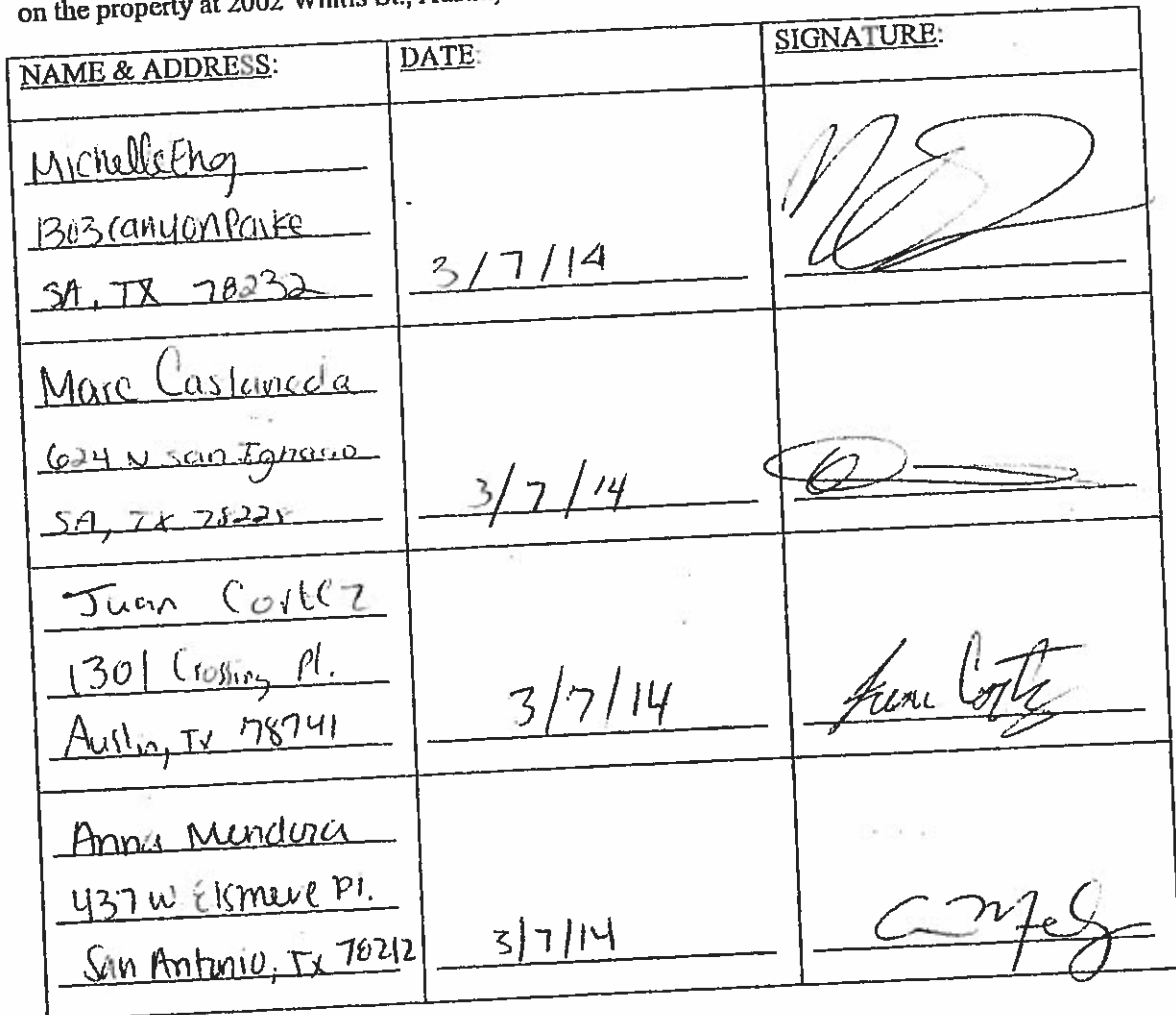 on the property at 2002 Whitis St.,
NAME & ADDRESS: DATE: SIGNATURE:
Michelle Eng
1303 Canyon Parke
SA, TX 78232 3/7/14
Marc Castaneda
624 N San Ignacio
SA, TX 78228 3/7/14
Juan Cortez
1301 Crossing Pl.
Austin, TX 78741 3/7/14 Juan Cortez
Anna Mendoza
437 W Elsmere Pl.
San Antonio, TX 78212 3/7/14